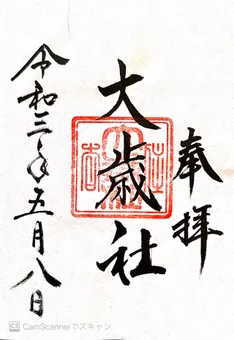 奉拝
大歳社
令和三年五月八日
CS CamScannerでスキャン